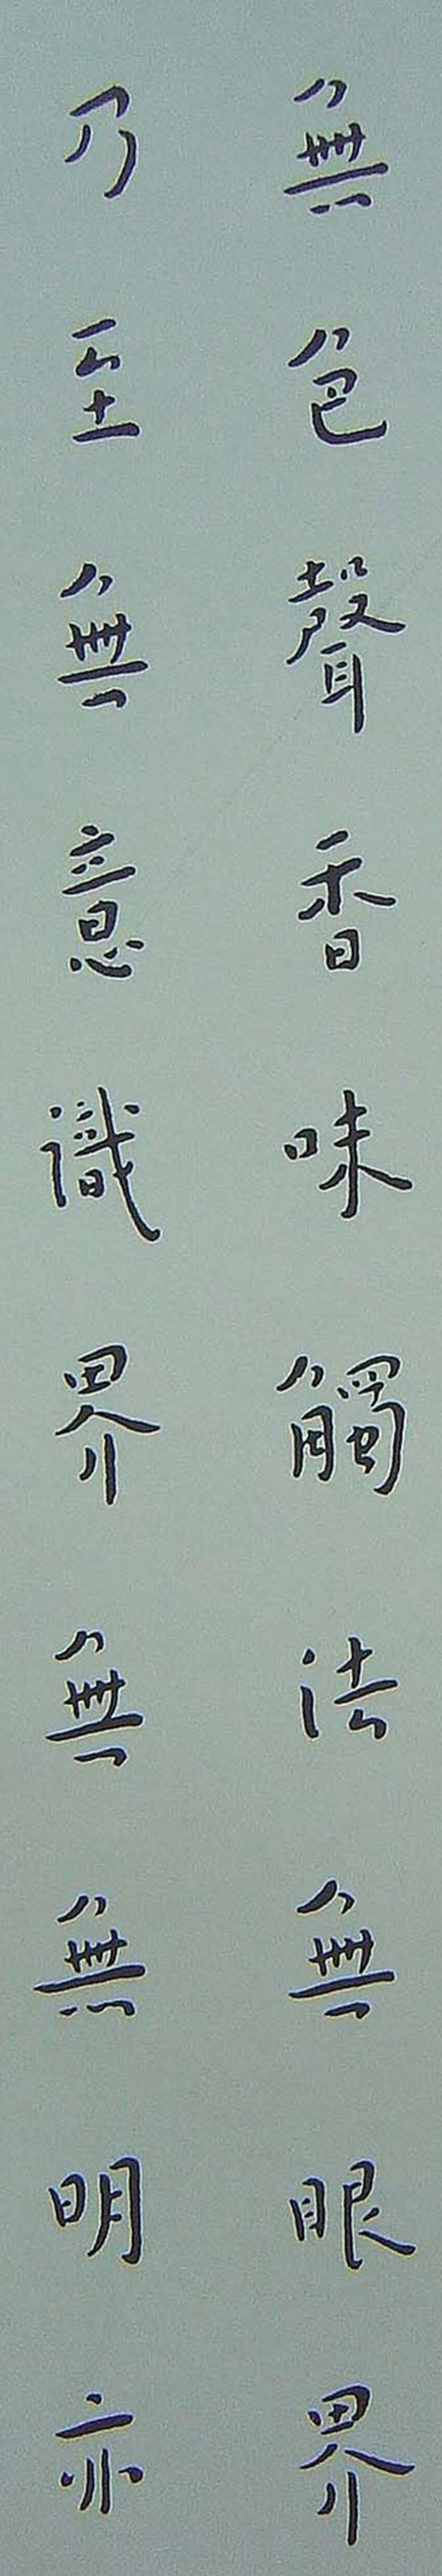 無色聲香味觸法無眼界
乃至無意識界無無明亦